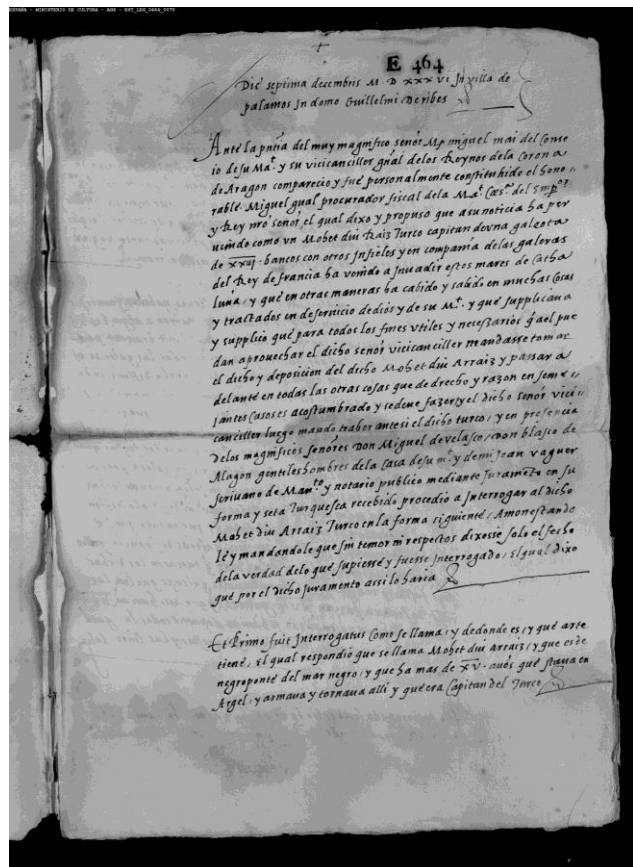 ESPAÑA - MINISTERIO DE CULTURA - AGS - EST_LEG_0464_0078
E 464
Die septima decembris M D xxxvi In villa de
palamos In domo Guillelmi de ribes
Ante la pntia del muy magnifico señor Mº miguel mai del Conse
io de su Ma.t y su vicicanciller gnal delos Reynos dela Corona
de Aragon comparecio y fue personalmente constituhido el hono
rable Miguel gual procurador fiscal dela Ma.t Cesª del Empor
y Rey nro señor, el qual dixo y propuso que a su noticia ha per
uenido como vn Mohet diu Raiz Turco capitan de vna galeota
de xxij bancos con otros Infieles y en compañia delas galeras
del Rey de francia ha venido a Inuadir estos mares de Catha
luña, y que en otras maneras ha cabido y sabido en muchas cosas
y tractados en deseruicio de dios y de su M.t y que supplicaua
y supplico que para todos los fines vtiles y necessarios q̃ ael pue
dan aprouechar el dicho señor vicicanciller mandasse tomar
el dicho y deposicion del dicho Mohet diu Arraiz y passar a
delante en todas las otras cosas que de drecho y razon en seme
jantes casos es acostumbrado y se deue fazer, y el dicho señor vici
canciller luego mando traher ante si el dicho turco, y en presencia
delos magnificos señores Don Miguel de velasco, Don blasco de
Alagon gentiles hombres de la casa de su m.t y de mi Joan vaguer
scriuano de Man.to y notario publico mediante Jurameto en su
forma y seta Turquesca recebido procedio a Interrogar al dicho
Mahet diu Arraiz Turco en la forma siguiente, Amonestando
le y mandandole que sin temor ni respectos dixesse solo el fecho
dela verdad delo que supiesse y fuesse Interrogado, El qual dixo
que por el dicho Juramento assi lo haria
Et Primo fuit Interrogatus Como se llama, y de donde es, y que arte
tiene, El qual respondio que se llama Mohet diu arraiz, y que es de
negroponte del mar negro, y que ha mas de xv años que staua en
Argel, y armaua y tornaua alli y que era Capitan del Turco